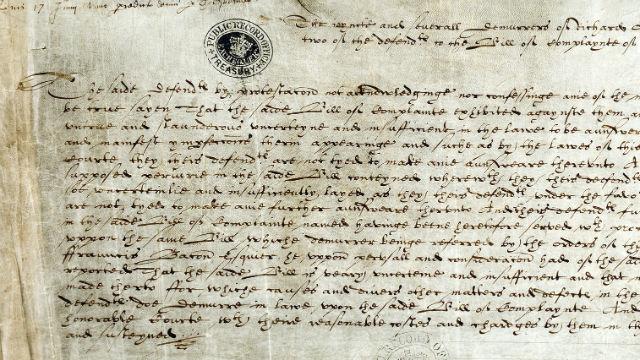 The joynte and severall demurrers of Richarde
two of the defendts to the Bill of Complaynte of
PUBLIC RECORD OFFICE
TREASURY
The saide defendts by protestacon not acknowledginge nor confessinge anie of the
be true sayen That the saide Bill of Complainte exhibited againste them
untrue and slaunderous uncerteyne and insufficient in the lawe to be aunswered
and manifest imperfections therin appearinge and suche as by the lawes of this
Courte, they theis defendts are not tyed to make anie aunsweare hereunto
supposed periurie in the saide Bill conteyned wherewth they theis defendts
so uncertenlie and insufficiently layed as they theis defendts under the favor
are not tyed to make anie further aunsweare therunto And theis defendts
in the saide Bill of Complaynte named havinge bene heretofore served wth
uppon the same Bill whiche demurrer beinge referred by the orders of
ffrauncis Bacon Esquier he uppon perusall and consideracon had of the saide
reported That the saide Bill is veary uncerteine and insufficient and that
made therto ffor whiche causes and divers other matters and defects in the
defendts doe demurre in lawe upon the saide Bill of Complaynte And
honorable Courte wth theire reasonable costes and chardges by them in
and susteyned